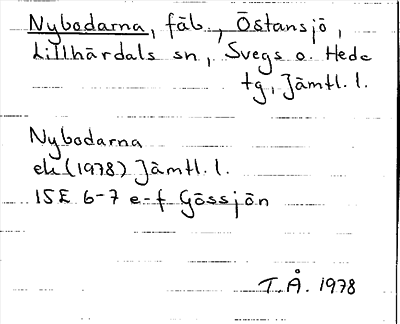 Nybodarna, fäb., Östansjö,
Lillhärdals sn, Svegs o. Hede
tg, Jämtl. l.
Nybodarna
ek (1978) Jämtl. l.
15E 6-7 e-f Gössjön
T. Å. 1978